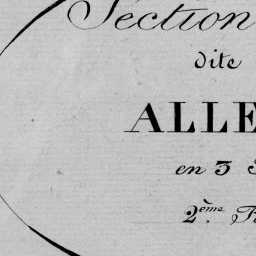 Section
dite
ALLE
en 3
2ème F